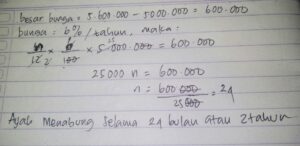 besar bunga = 5.600.000 - 5000.000 = 600.000
bunga = 6% / tahun, maka:
n/12 × 6/100 × 5.000.000 = 600.000
25000 n = 600.000
n = 600.000/25000 = 24
Ayah Menabung selama 24 bulan atau 2 tahun